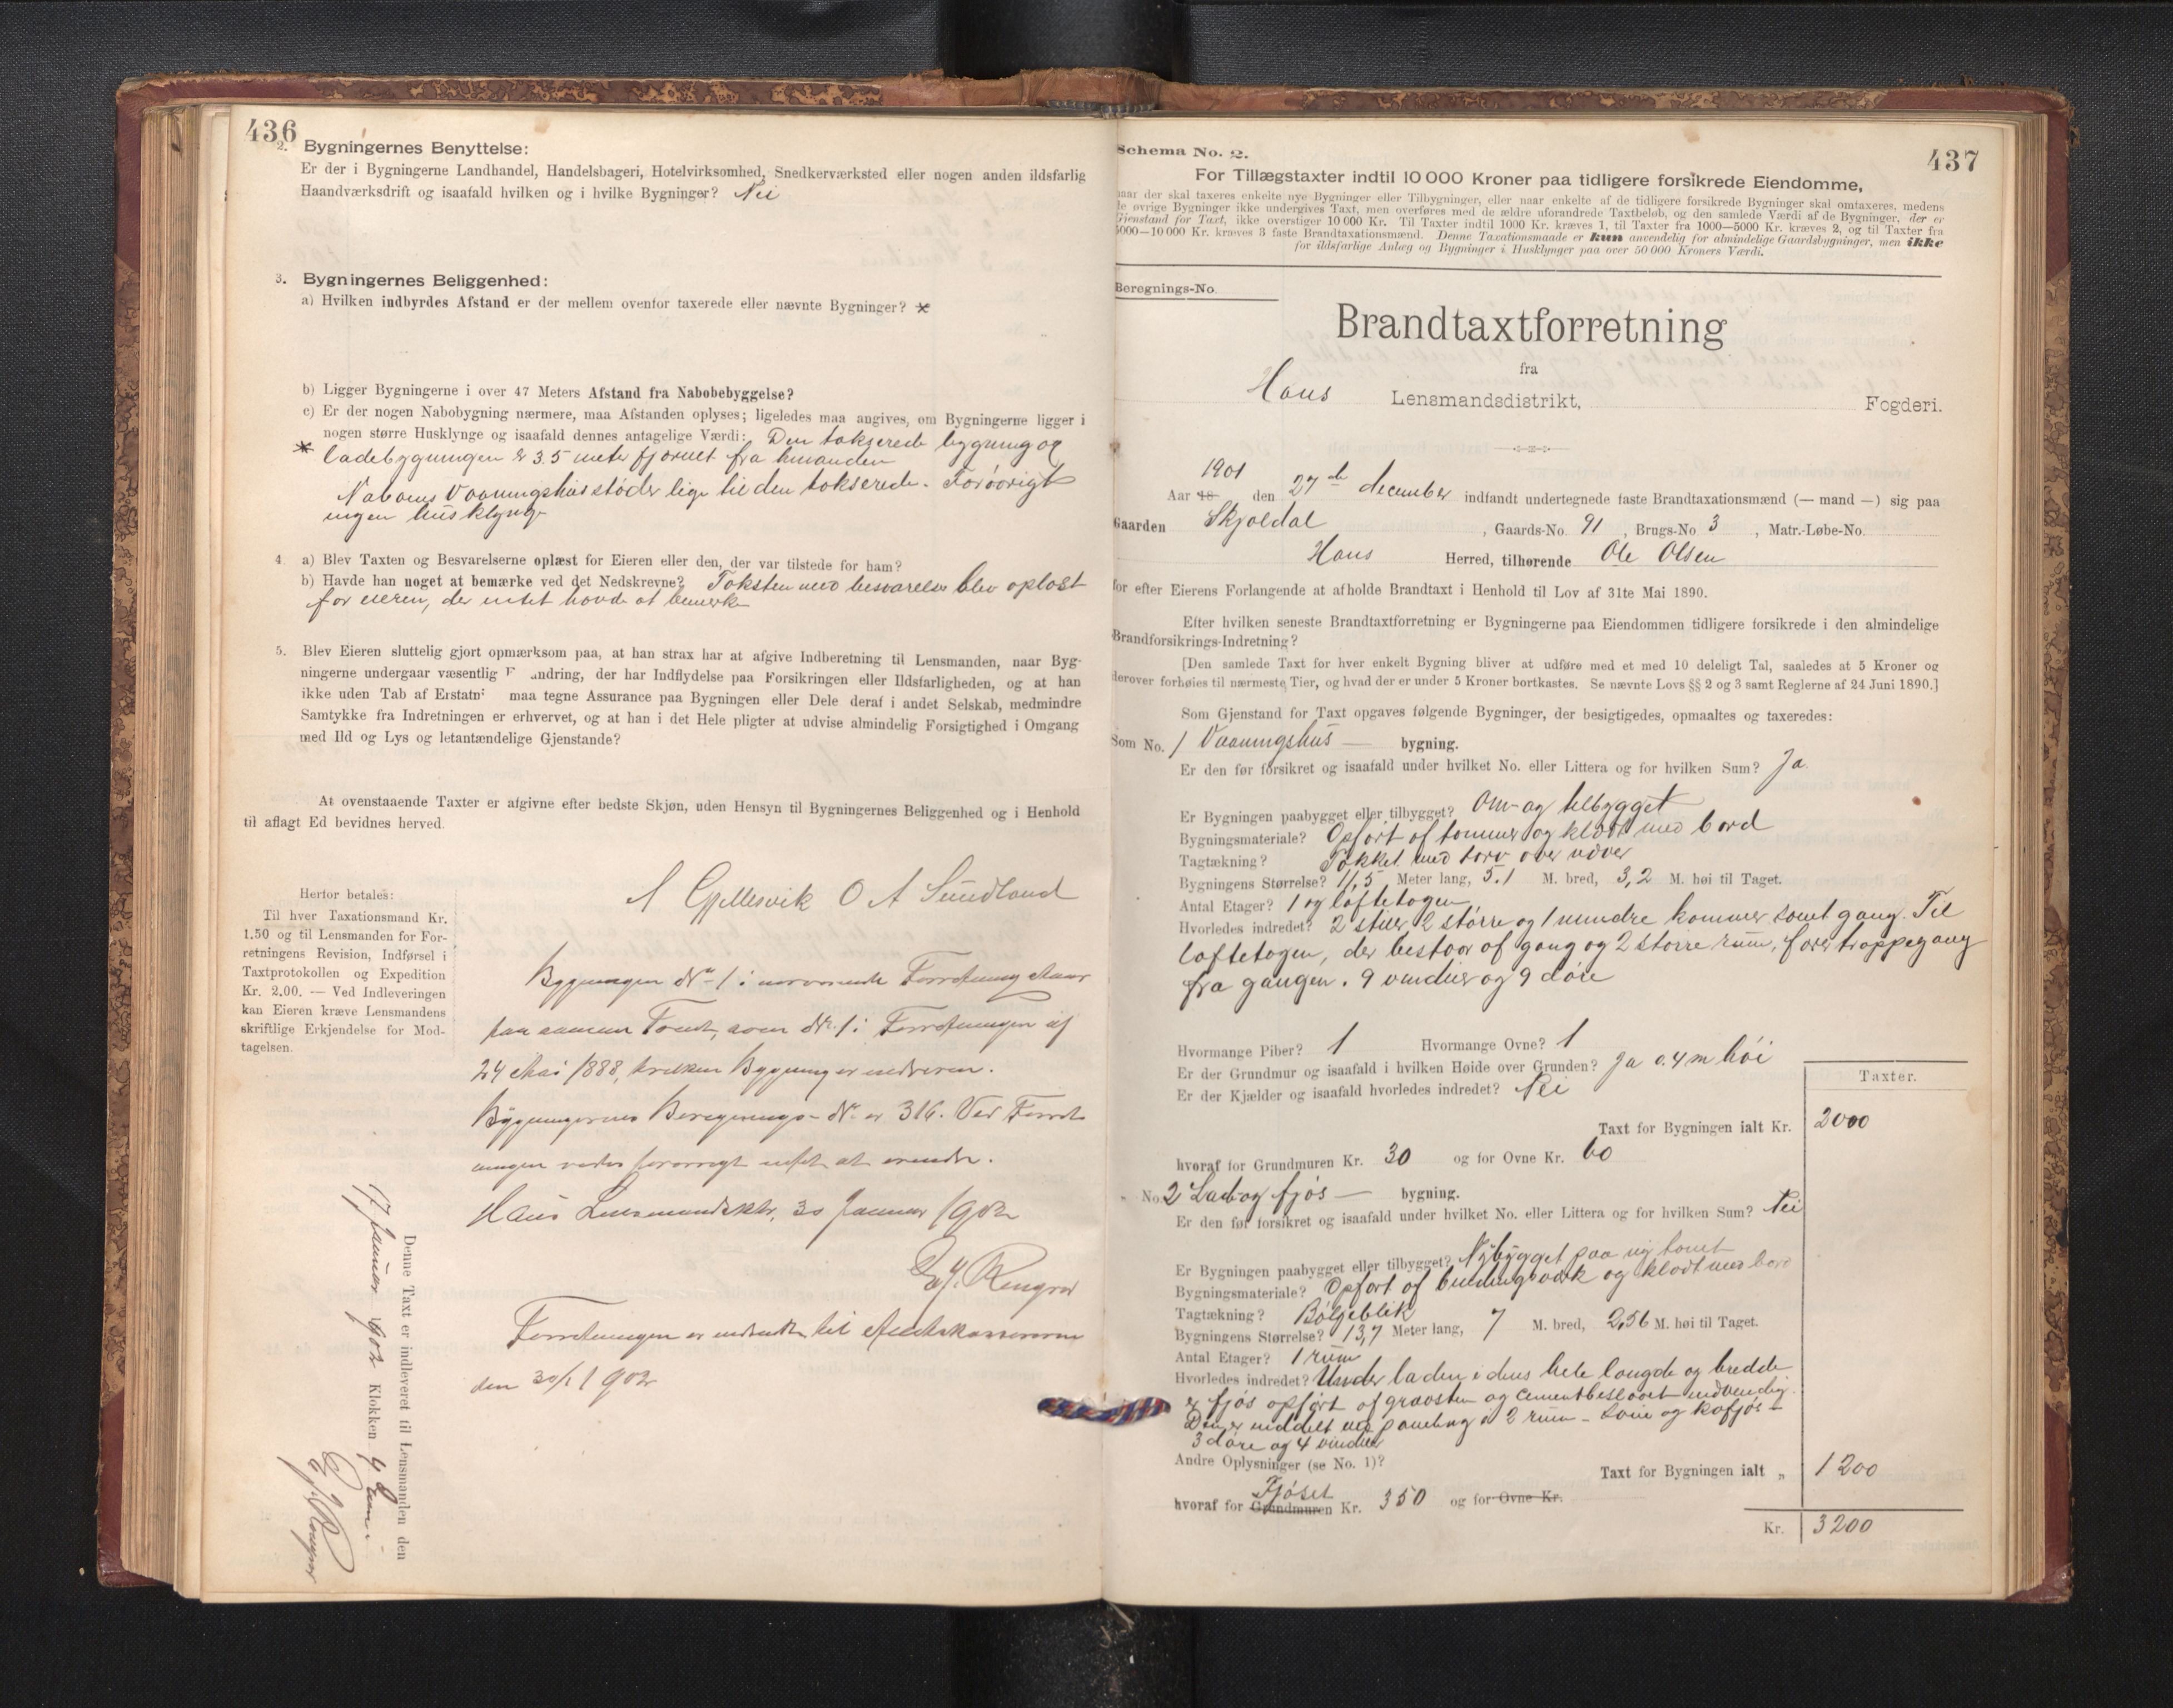 436
2. Bygningernes Benyttelse:
Er der i Bygningerne Landhandel, Handelsbageri, Hotelvirksomhed, Snedkerværksted eller nogen anden ildsfarlig
Haandværksdrift og isaafald hvilken og i hvilke Bygninger? Nei
3. Bygningernes Beliggenhed:
a) Hvilken indbyrdes Afstand er der mellem ovenfor taxerede eller nævnte Bygninger? *
b) Ligger Bygningerne i over 47 Meters Afstand fra Nabobebyggelse?
c) Er der nogen Nabobygning nærmere, maa Afstanden oplyses; ligeledes maa angives, om Bygningerne ligger i
nogen større Husklynge og isaafald dennes antagelige Værdi: Den takserede bygning og
* ladebygningen er 3.5 meter fjærnet fra hinanden
Naboens Vaaningshus støder lige til den takserede. Forøvrigt
ingen husklynge
4. a) Blev Taxten og Besvarelserne oplæst for Eieren eller den, der var tilstede for ham?
b) Havde han noget at bemærke ved det Nedskrevne? Taksten med besvarelse blev oplæst
for eieren, der intet havde at bemerke
5. Blev Eieren sluttelig gjort opmærksom paa, at han strax har at afgive Indberetning til Lensmanden, naar Byg-
ningerne undergaar væsentlig F andring, der har Indflydelse paa Forsikringen eller Ildsfarligheden, og at han
ikke uden Tab af Erstatn maa tegne Assurance paa Bygningen eller Dele deraf i andet Selskab, medmindre
Samtykke fra Indretningen er erhvervet, og at han i det Hele pligter at udvise almindelig Forsigtighed i Omgang
med Ild og Lys og letantændelige Gjenstande?
At ovenstaaende Taxter er afgivne efter bedste Skjøn, uden Hensyn til Bygningernes Beliggenhed og i Henhold
til aflagt Ed bevidnes herved.
A Gjellesvik O A Sundland
Herfor betales:
Til hver Taxationsmand Kr.
1.50 og til Lensmanden for For-
retningens Revision, Indførsel i
Taxtprotokollen og Expedition
Kr. 2.00. — Ved Indleveringen
kan Eieren kræve Lensmandens
skriftlige Erkjendelse for Mod-
tagelsen.
Bygningen No 1 i nærværende Forretning staar
paa samme Tomt, som No. 1 i Forretningen af
24 Mai 1888, hvilken Bygning er nedreven.
Bygningernes Beregnings-No er 316. Ved Forret
ningen vides forøvrigt intet at erindre.
Haus Lensmandsktr, 30 Januar 1902
Forretningen er indsendt til Amtskassereren
den 30/1 1902
Denne Taxt er indleveret til Lensmanden den
17 Januar 1902 Klokken 4 Em.
437
Schema No. 2.
For Tillægstaxter indtil 10 000 Kroner paa tidligere forsikrede Eiendomme,
naar der skal taxeres enkelte nye Bygninger eller Tilbygninger, eller naar enkelte af de tidligere forsikrede Bygninger skal omtaxeres, medens
de øvrige Bygninger ikke undergives Taxt, men overføres med de ældre uforandrede Taxtbeløb, og den samlede Værdi af de Bygninger, der er
Gjenstand for Taxt, ikke overstiger 10 000 Kr. Til Taxter indtil 1000 Kr. kræves 1, til Taxter fra 1000—5000 Kr. kræves 2, og til Taxter fra
5000—10 000 Kr. kræves 3 faste Brandtaxationsmænd. Denne Taxationsmaade er kun anvendelig for almindelige Gaardsbygninger, men ikke
for ildsfarlige Anlæg og Bygninger i Husklynger paa over 50 000 Kroners Værdi.
Beregnings-No.
Brandtaxtforretning
fra
Haus Lensmandsdistrikt, Fogderi.
Aar 18 1901 den 27de december indfandt undertegnede faste Brandtaxationsmænd (— mand —) sig paa
Gaarden Skjoldal, Gaards-No. 91, Brugs-No 3, Matr.-Løbe-No.
Haus Herred, tilhørende Ole Olsen
for efter Eierens Forlangende at afholde Brandtaxt i Henhold til Lov af 31te Mai 1890.
Efter hvilken seneste Brandtaxtforretning er Bygningerne paa Eiendommen tidligere forsikrede i den almindelige
Brandforsikrings-Indretning?
[Den samlede Taxt for hver enkelt Bygning bliver at udføre med et med 10 deleligt Tal, saaledes at 5 Kroner og
derover forhøies til nærmeste Tier, og hvad der er under 5 Kroner bortkastes. Se nævnte Lovs §§ 2 og 3 samt Reglerne af 24 Juni 1890.]
Som Gjenstand for Taxt opgaves følgende Bygninger, der besigtigedes, opmaaltes og taxeredes:
Som No. 1 Vaaningshus — bygning.
Er den før forsikret og isaafald under hvilket No. eller Littera og for hvilken Sum? Ja.
Er Bygningen paabygget eller tilbygget? Om- og tilbygget
Bygningsmateriale? Opført af tømmer og klædt med bord
Tagtækning? Tækket med torv over næver
Bygningens Størrelse? 11,5 Meter lang, 5.1 M. bred, 3,2 M. høi til Taget.
Antal Etager? 1 og loftetagen
Hvorledes indredet? 2 stuer 2 større og 1 mindre kammer samt gang. Til
loftetagen, der bestaar af gang og 2 større rum, fører trappegang
fra gangen. 9 vinduer og 9 døre
Hvormange Piber? 1 Hvormange Ovne? 1
Er der Grundmur og isaafald i hvilken Høide over Grunden? Ja 0.4 m høi
Er der Kjælder og isaafald hvorledes indredet? Nei
Taxter.
Taxt for Bygningen ialt Kr. 2000
hvoraf for Grundmuren Kr. 30 og for Ovne Kr. 60
" No. 2 Lade og fjøs — bygning.
Er den før forsikret og isaafald under hvilket No. eller Littera og for hvilken Sum? Nei
Er Bygningen paabygget eller tilbygget? Nybygget paa ny tomt
Bygningsmateriale? Opført af bindingsværk og klædt med bord
Tagtækning? Bølgeblik
Bygningens Størrelse? 13,7 Meter lang, 7 M. bred, 2,56 M. høi til Taget.
Antal Etager? 1 rum
Hvorledes indredet? Under laden i dens hele længde og bredde
er fjøs opført af graasten og cementbeslaaet indvendig.
Den er inddelt ved paneling i 2 rum - saue og kofjøs -
3 døre og 4 vinduer
Andre Oplysninger (se No. 1)? Taxt for Bygningen ialt „ 1200
hvoraf for Grundmuren Fjøset Kr. 350 og for Ovne Kr.
Kr. 3200